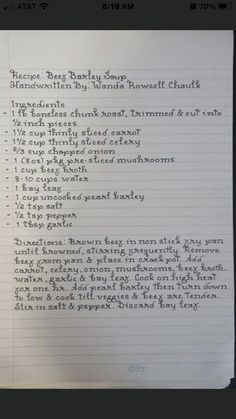 AT&T
8:19 AM
70%
Recipe: Beef Barley Soup
Handwritten By: Wanda Rowsell Chaulk
Ingredients
- 1 lb boneless chunk roast, trimmed & cut into
1/2 inch pieces
- 1 1/2 cup thinly sliced carrot
- 1 1/2 cup thinly sliced celery
- 2/3 cup chopped onion
- 1 (8oz) pkg pre-sliced mushrooms
- 1 cup beef broth
- 8-10 cups water
- 1 bay leaf
- 1 cup uncooked pearl barley
- 1/2 tsp salt
- 1/2 tsp pepper
- 1 tbsp garlic
Directions: Brown beef in non stick fry pan
until browned, stirring frequently. Remove
beef from pan & place in crock pot. Add
carrot, celery, onion, mushrooms, beef broth,
water, garlic & bay leaf. Cook on high heat
for one hr. Add pearl barley then turn down
to low & cook till veggies & beef are tender.
Stir in salt & pepper. Discard bay leaf.